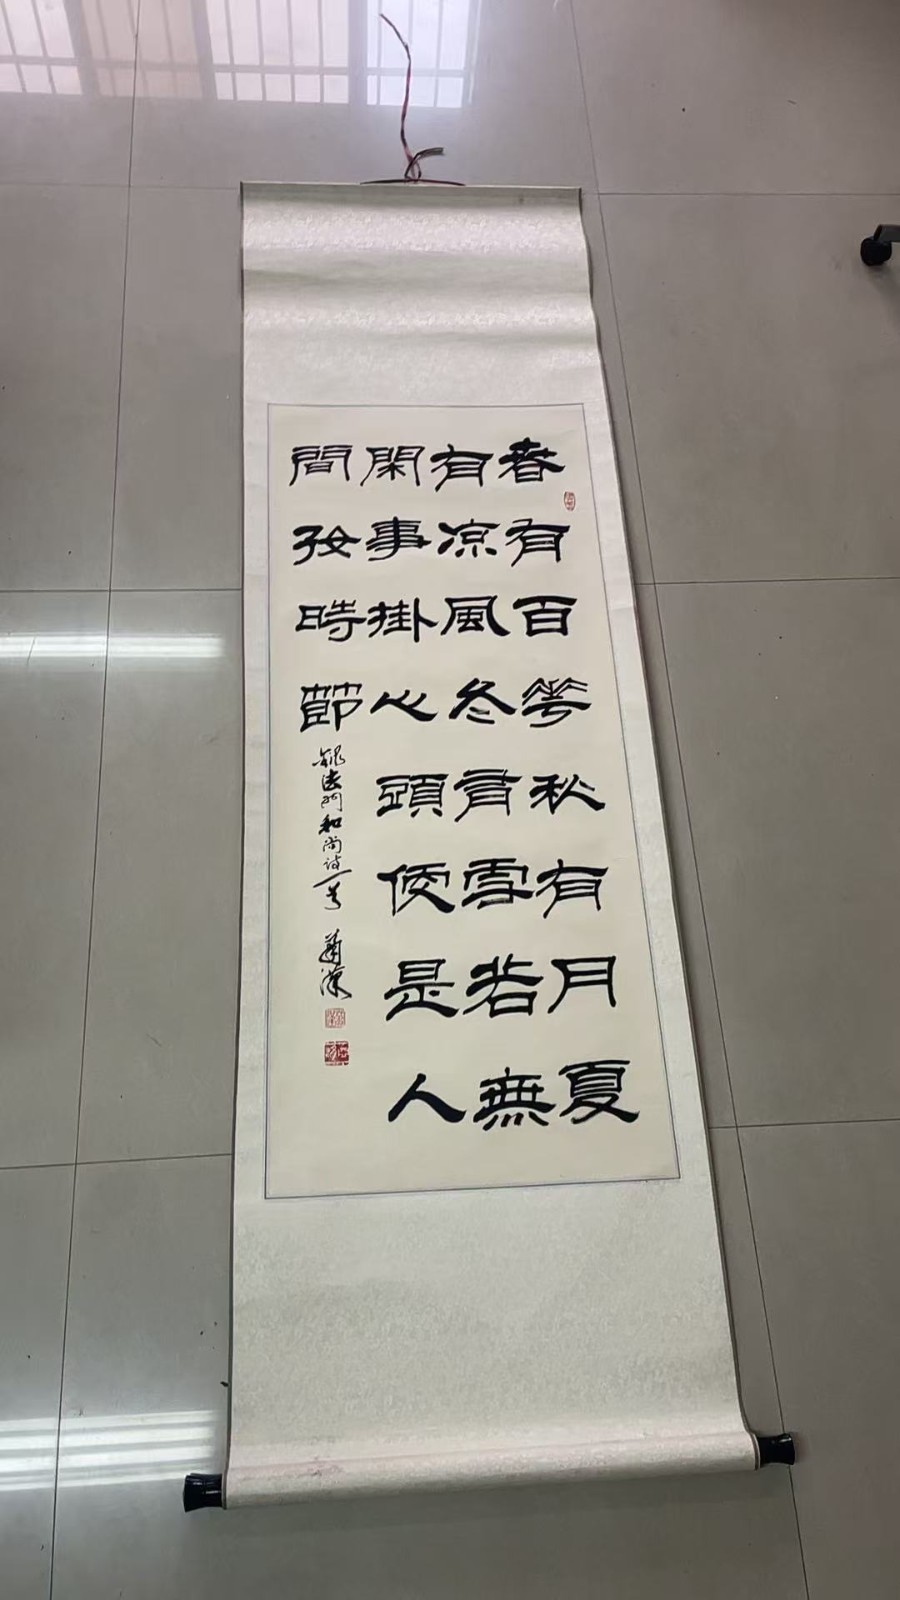 春有百花秋有月夏
有凉風冬有雪若無
閑事掛心頭便是人
間好時節
錄法門和尚詩一首